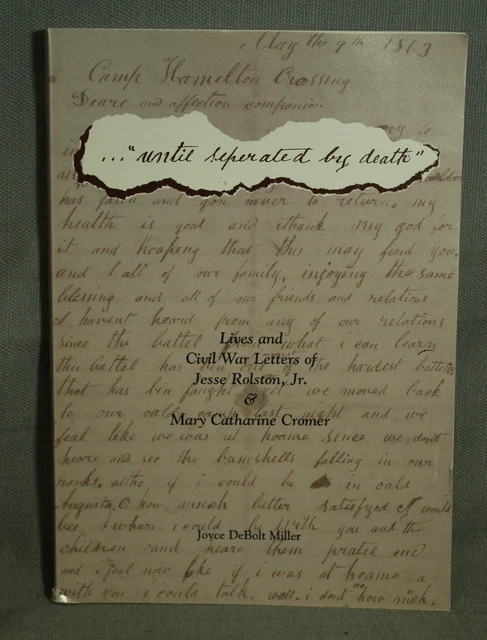 May the 9th 1863
Camp Hamilton Crossing
Deare and affection companion
..."until seperated by death"
has falen and gon never to return. my
health is good and ithank my god for
it and hoaping that this may find you
and l all of our family. injoying the same
blessing and all of our friends and relations
I havent heard from any of our relations
since the battel what i can learn
Lives and
Civil War Letters of
this battel has bin one of the hardest battels
Jesse Rolston, Jr.
that has bin faught yet we moved back
&
to our oald camp last night and we
Mary Catharine Cromer
feal like we was at hoame since we dont
heare and see the bumshells falling in our
ranks. altho if i could be in oald
Augusta. O how much better satisfyed I would
bee where i could be with you and the
Joyce DeBolt Miller
children and heare them pratle and
and i feal now like if i was at hoame a
with you i could talk. well. i dont know